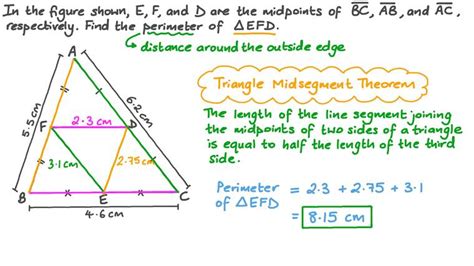 In the figure shown, E, F, and D are the midpoints of BC, AB, and AC,
respectively. Find the perimeter of △EFD.
distance around the outside edge
A
Triangle Midsegment Theorem
5.5 cm
6.2 cm
The length of the line segment joining
the midpoints of two sides of a triangle
is equal to half the length of the third
side.
F
2.3 cm
D
3.1 cm
2.75 cm
Perimeter = 2.3 + 2.75 + 3.1
of △EFD
= 8.15 cm
B
E
C
4.6 cm